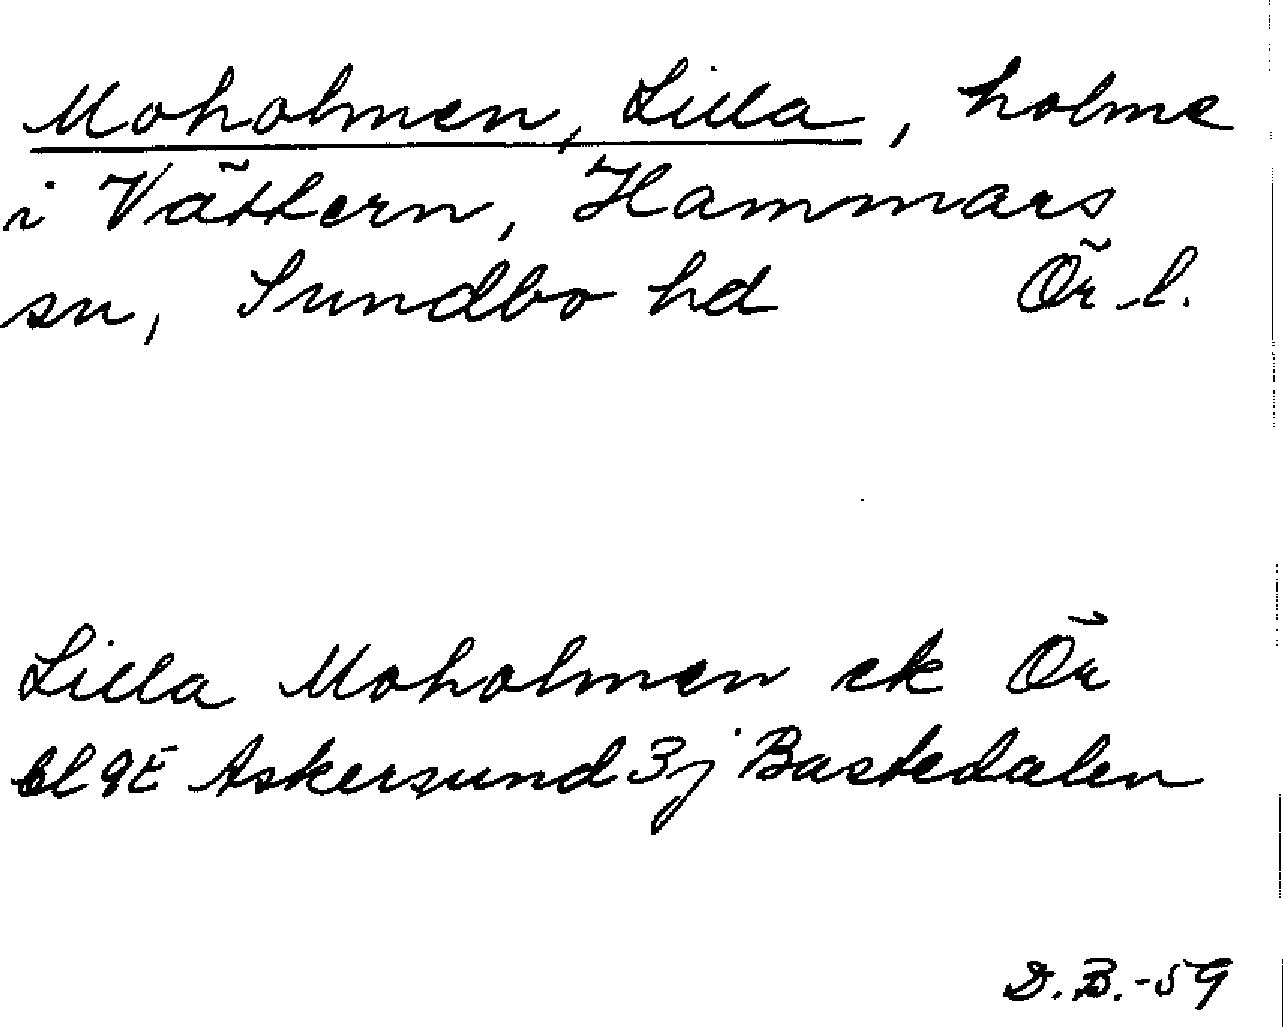 Moholmen, Lilla, holme
i Vättern, Hammars
sn, Sundbo hd Ör l.
Lilla Moholmen ek Ör
bl 9E Askersund 3j Bastedalen
D.B.-59